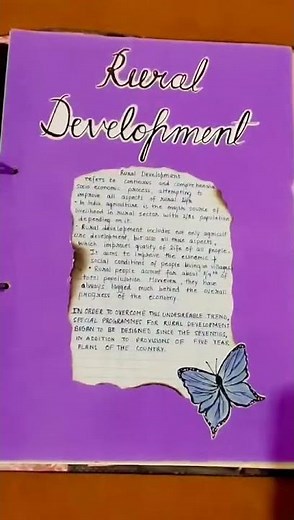 Rural
Development
Rural Development
refers to continuous and comprehensive
socio-economic process, attempting to
improve all aspects of rural life
- In India agriculture is the major source of
livelihood in rural sector with population
depending on it.
- Rural development includes not only agricult
ure development, but also all those aspects,
which improve quality of life of all people.
It aims to improve the economic &
social conditions of people living in villages
- Rural people account for about of
total population. However, they have
always lagged much behind the overall
progress of the economy.
IN ORDER TO OVERCOME THIS UNDESIRABLE TREND,
SPECIAL PROGRAMMES FOR RURAL DEVELOPMENT
BEGAN TO BE DESIGNED SINCE THE SEVENTIES,
IN ADDITION TO PROVISIONS OF FIVE YEAR
PLANS OF THE COUNTRY.